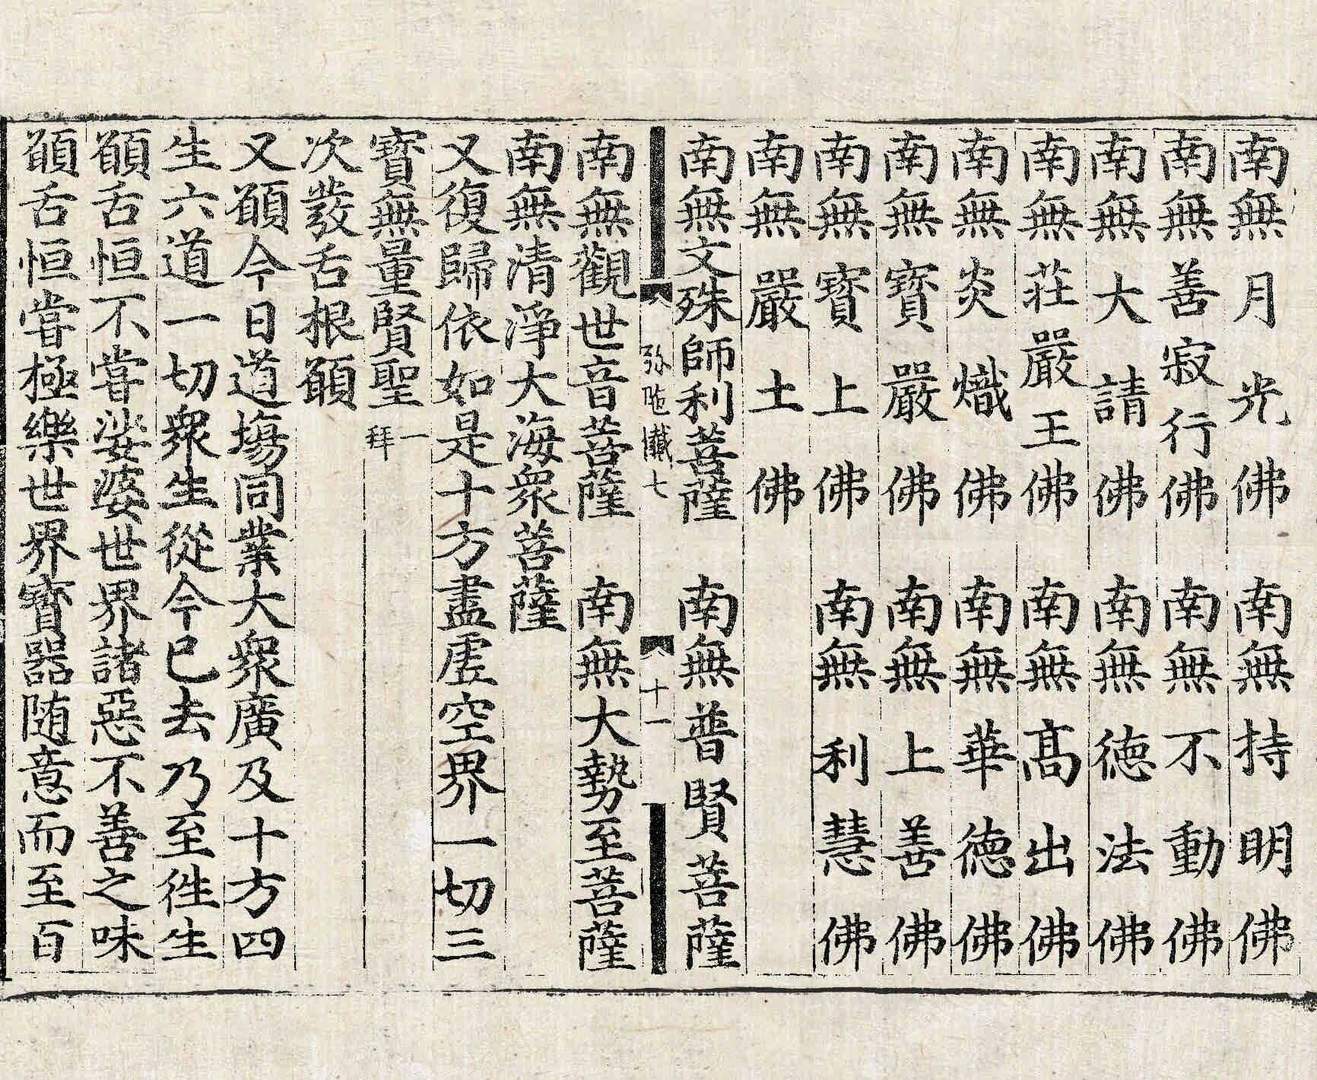 南無月光佛　南無持明佛
南無善寂行佛　南無不動佛
南無大請佛　南無德法佛
南無莊嚴王佛　南無髙出佛
南無炎熾佛　南無華德佛
南無寶嚴佛　南無上善佛
南無寶上佛　南無利慧佛
南無嚴土佛
南無文殊師利菩薩　南無普賢菩薩
弥陁懺七　十一
南無觀世音菩薩　南無大勢至菩薩
南無清淨大海衆菩薩
又復歸依如是十方盡虛空界一切三
寶無量賢聖一拜
次發舌根願
又願今日道場同業大衆廣及十方四
生六道一切衆生從今已去乃至徃生
願舌恒不嘗娑婆世界諸惡不善之味
願舌恒嘗極樂世界寶器随意而至百